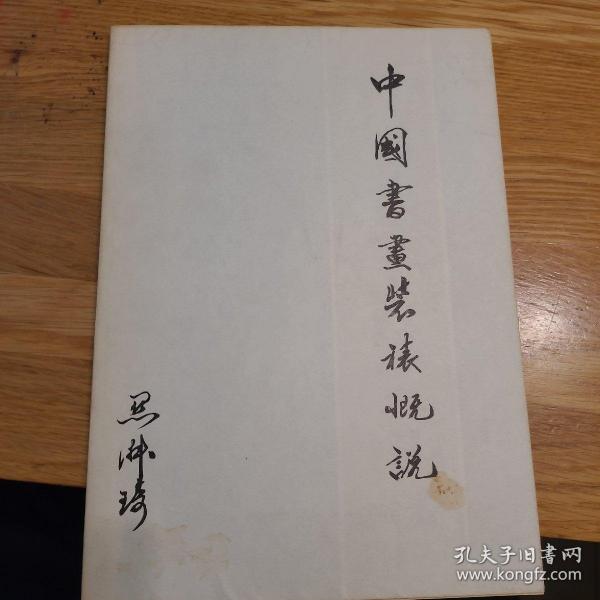 中國書畫裝裱概説
孔夫子旧书网
www.kongfz.com